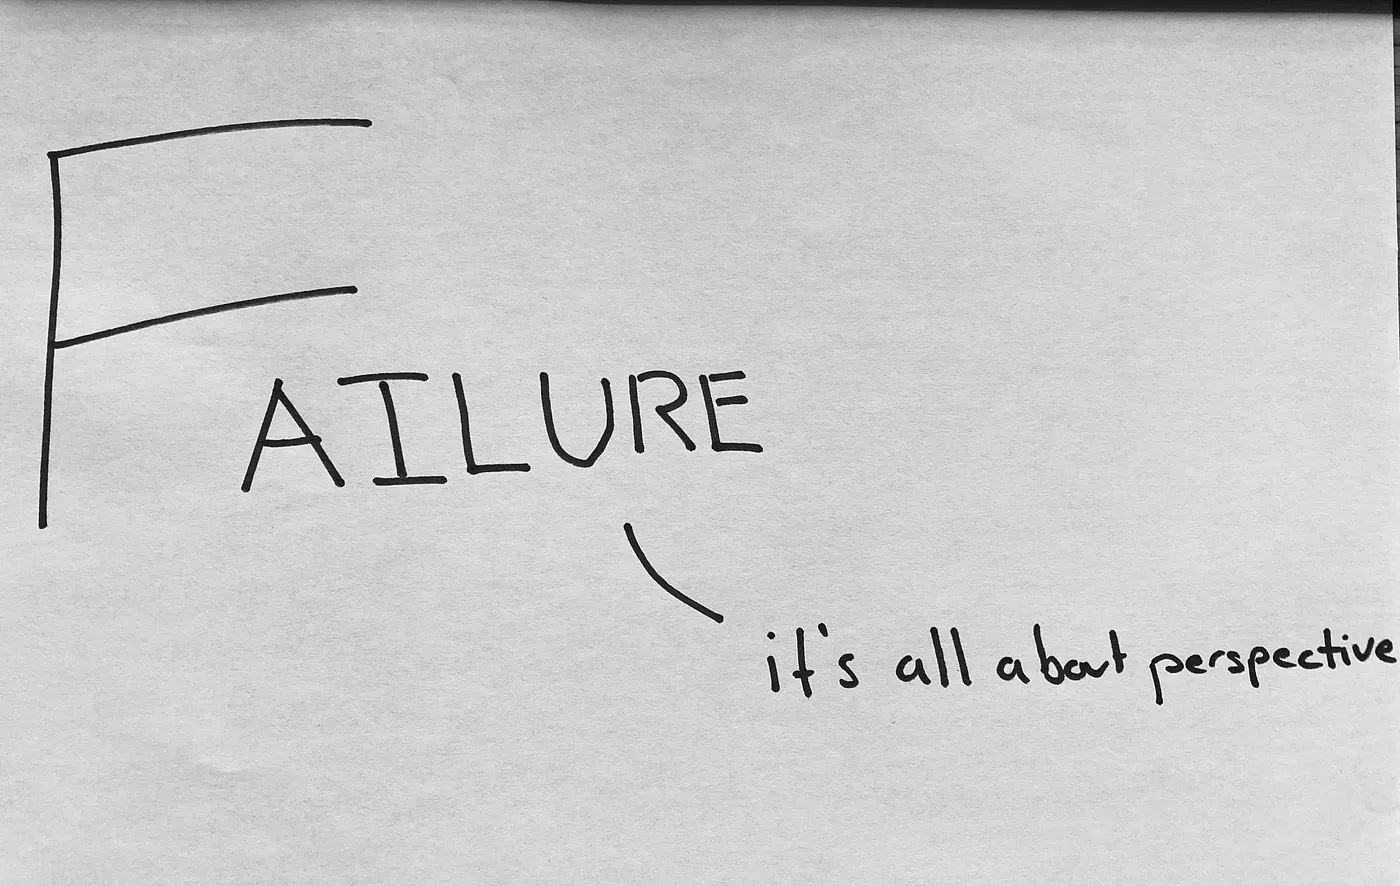 FAILURE
it's all about perspective